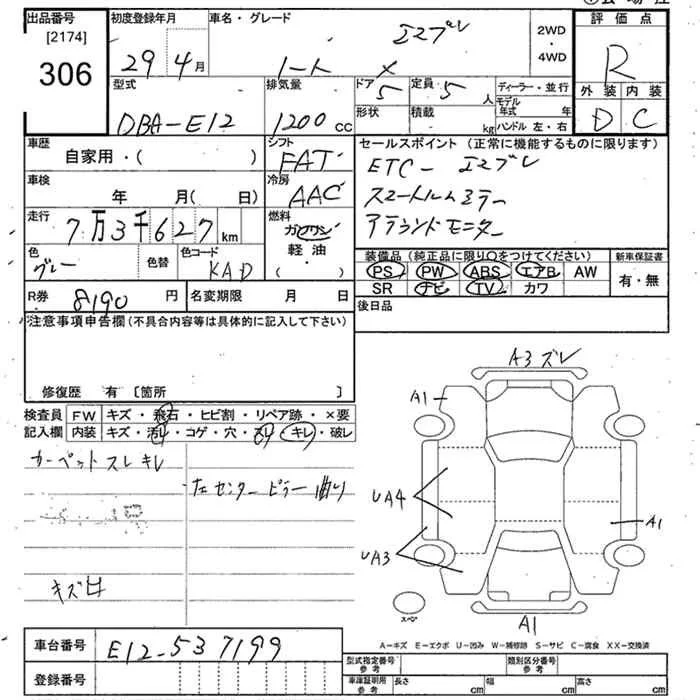 出品番号
[2174]
306
初度登録年月
29年4月
車名・グレード
ノート
エヌブレ
2WD
・
4WD
評価点
R
外装 内装
D C
型式
DBA-E12
排気量
1200cc
ドア
5
定員
5人
形状
積載
kg
ディーラー・並行
モデル年式 年
ハンドル 左・右
車歴
自家用・( )
シフト
FAT
セールスポイント (正常に機能するものに限ります)
ETC- エヌブレ
スマートルムミラー
アラウンドモニター
車検
年 月( 日)
冷房
AAC
走行
7万3千627km
燃料
ガソリン
軽・油
( )
色
グレー
色替
色コード
KAD
装備品 (純正品に限り○をつけてください)
PS PW ABS エアB AW
SR ナビ TV カワ
新車保証書
有・無
R券 8190円
名変期限 月 日
後日品
注意事項申告欄(不具合内容等は具体的に記入して下さい)
修復歴 有 〔箇所 〕
検査員記入欄
FW キズ・飛石・ヒビ割・リペア跡・×要
内装 キズ・汚レ・コゲ・穴・スレ・キレ・破レ
カーペットスレキレ
左センターピラー曲り
キズ
A3ズレ
A1
UA4
UA3
A1
A1
スペア
A-キズ E-エクボ U-凹み W-補修跡 S-サビ C-腐食 XX-交換済
車台番号 E12-537199
登録番号
型式指定番号 参考
類別区分番号 参考
車庫証明用 参考
長さ cm
幅 cm
高さ cm